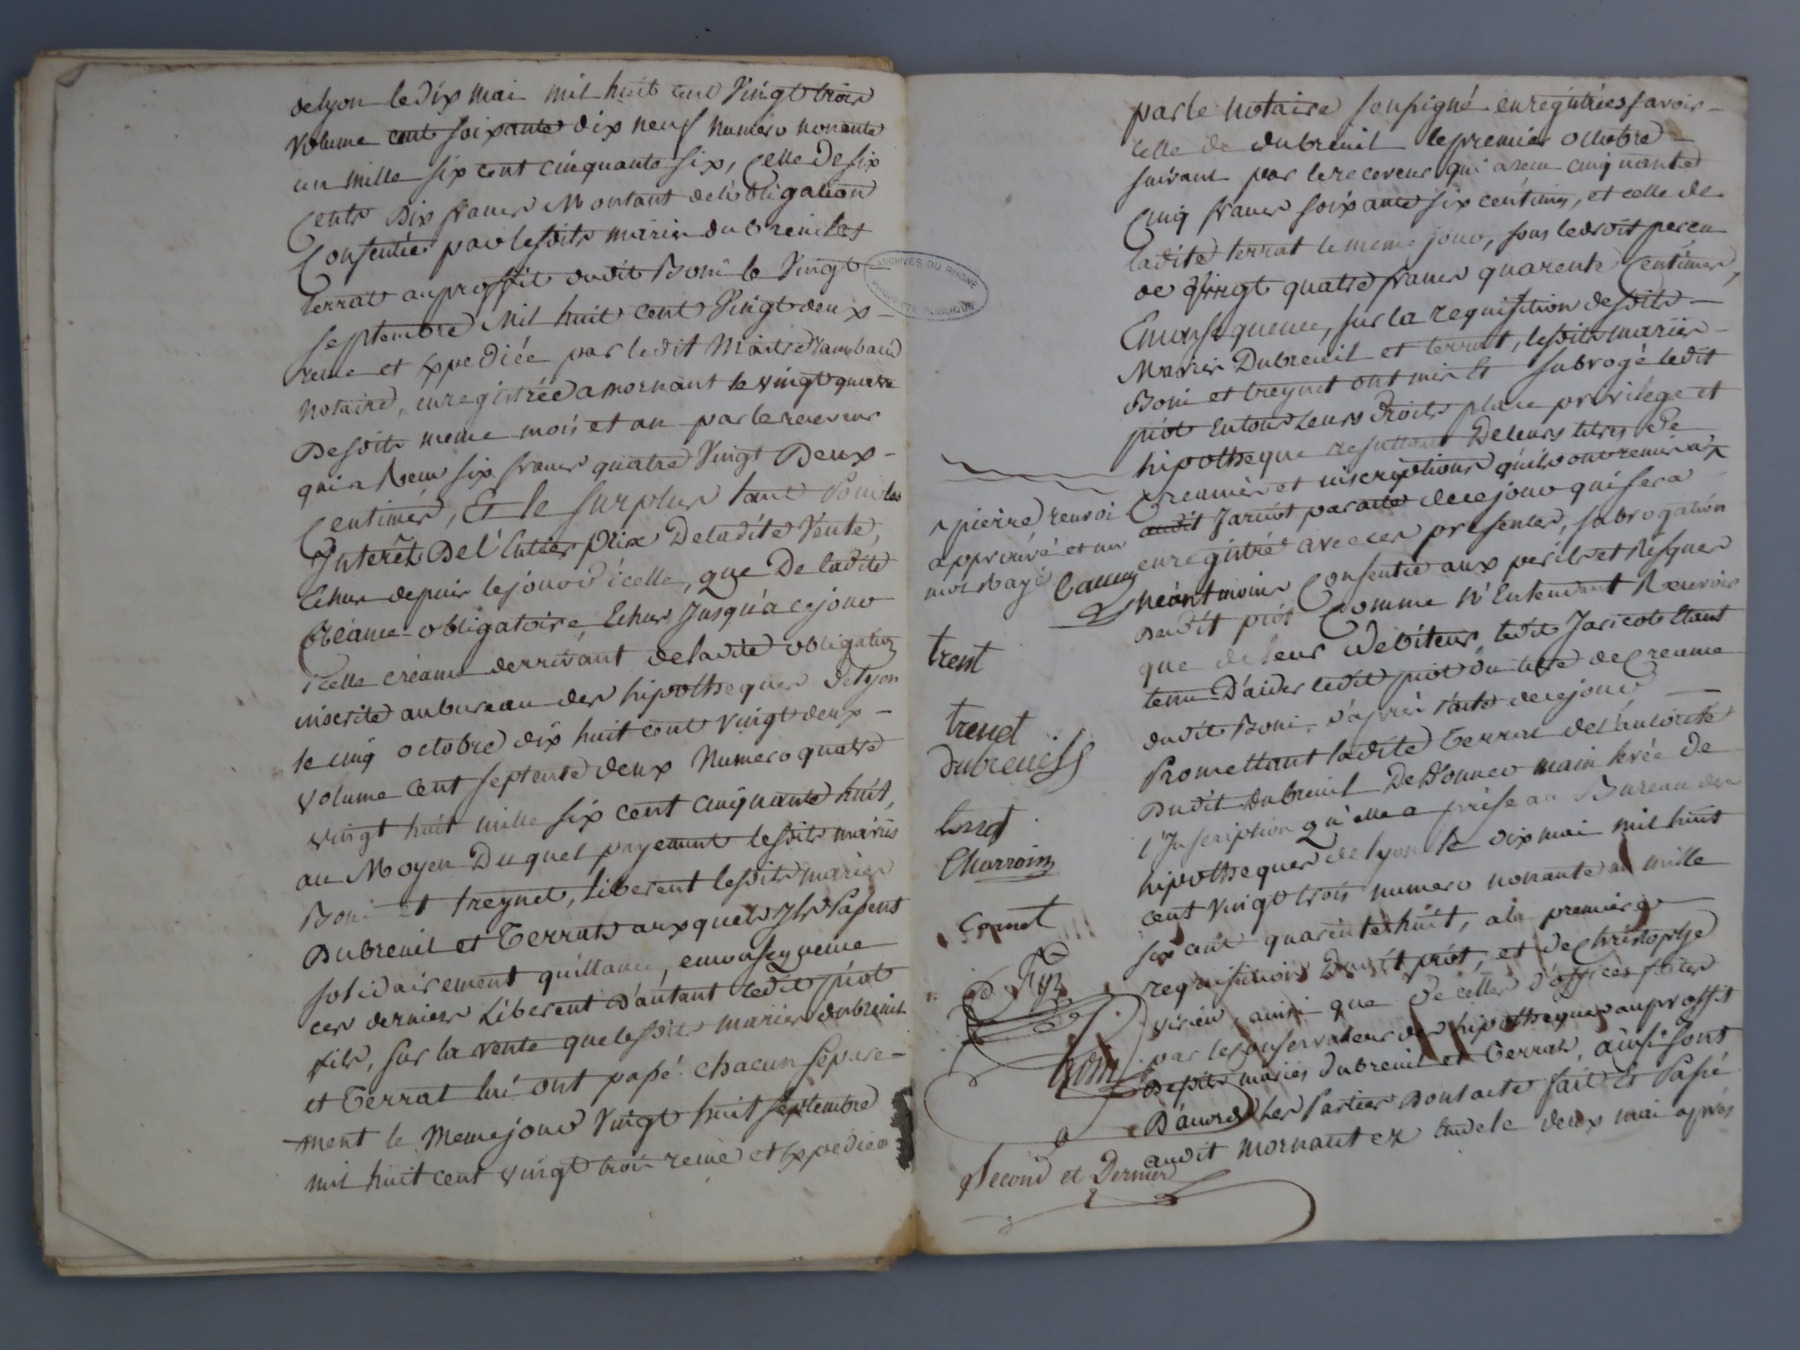 de lyon le dix mai mil huit cent Vingt trois
volume cent soixante dix neuf numéro nonante
un mille six cent cinquante six, Celle de six
Cents dix francs Montant de l'obligation
Consentie par lesdits mariés dubreuil et
terrat au proffit dudit Boni le Vingt
septembre Mil huit cent Vingt deux
reçue et Expediée par ledit Maitre
notaire, enregistrée a mornant le vingt quatre
Desdits meme mois et an par le receveur
qui a Reçu six francs quatre Vingt Deux
Centimes, Et le surplus tant Pour les
Interêts De l'Entier prix De ladite Vente,
Echus depuis le jour d'icelle, que De ladite
Créance obligatoire, Echus Jusqu'a ce jour
icelle créance derrivant de ladite obligation
inscrite au bureau des hipotheques de lyon
le cinq octobre dix huit cent vingt deux
volume cent septente deux Numero quatre
vingt huit mille six cent cinquante huit,
au Moyen Duquel payement lesdits mariés
Boni et treynet, liberent lesdits mariés
Dubreuil et Terrats auxquels Ils Passent
solidairement quittance, en consequence
ces derniers Liberent d'autant ledit piót
fils, sur la vente que lesdits mariés dubreuil
et Terrat lui ont passé chacun sépare-
ment le Meme jour Vingt huit septembre
mil huit cent vingt trois reçue et Expediée
ARCHIVES DU RHONE
par le notaire soussigné enregistrées savoir
celle de dubreuil le premier octobre
suivant par le receveur qui a reçu cinquante
Cinq francs soixante six centimes, et celle de
ladite terrat le meme jour, sous le droit perçu
de Vingt quatre francs quarente Centimes,
En consequence, sur la requisition desdits
Mariés Dubreuil et terrat, lesdits mariés
Boni et treynet ont mis et subrogé ledit
piót En tous Leurs Droits place privilege et
hipotheque resultant De leurs titres de
Creances et inscriptions qu'ils ont remis a
audit Jaricot par acte de ce jour qui sera
enregistré avec ces presentes, subrogation
néantmoins Consentie aux perils et Risques
Dudit piót Comme N'Entendant Recevoir
que de leur debiteur, ledit Jaricot Etant
tenu D'aider ledit piot du titre de Creance
dudit Boni, d'après l'acte de ce jour
Promettant ladite Terrat de l'autorité
Dudit dubreuil De Donner main levée De
l'Inscription qu'elle a prise au Bureau des
hipotheques de lyon le dix mai mil huit
cent vingt trois numero nonante un mille
six cent quarente huit, a la premiere
requisition Dudit piót, et de Christophe
virieu, ainsi que de celles d'offices faites
par le conservateur des hipotheques au proffit
Desdits mariés dubreuil et Terrat, ainsi sont
D'accord Les Parties Dont acte fait Et Passé
audit mornant Etude le deux mai après
pierre renvoi
approuvé et un
mot Rayé
trent
trenet
dubreuil
terrat
Charvoin
Cornet
boni
Second et Dernier